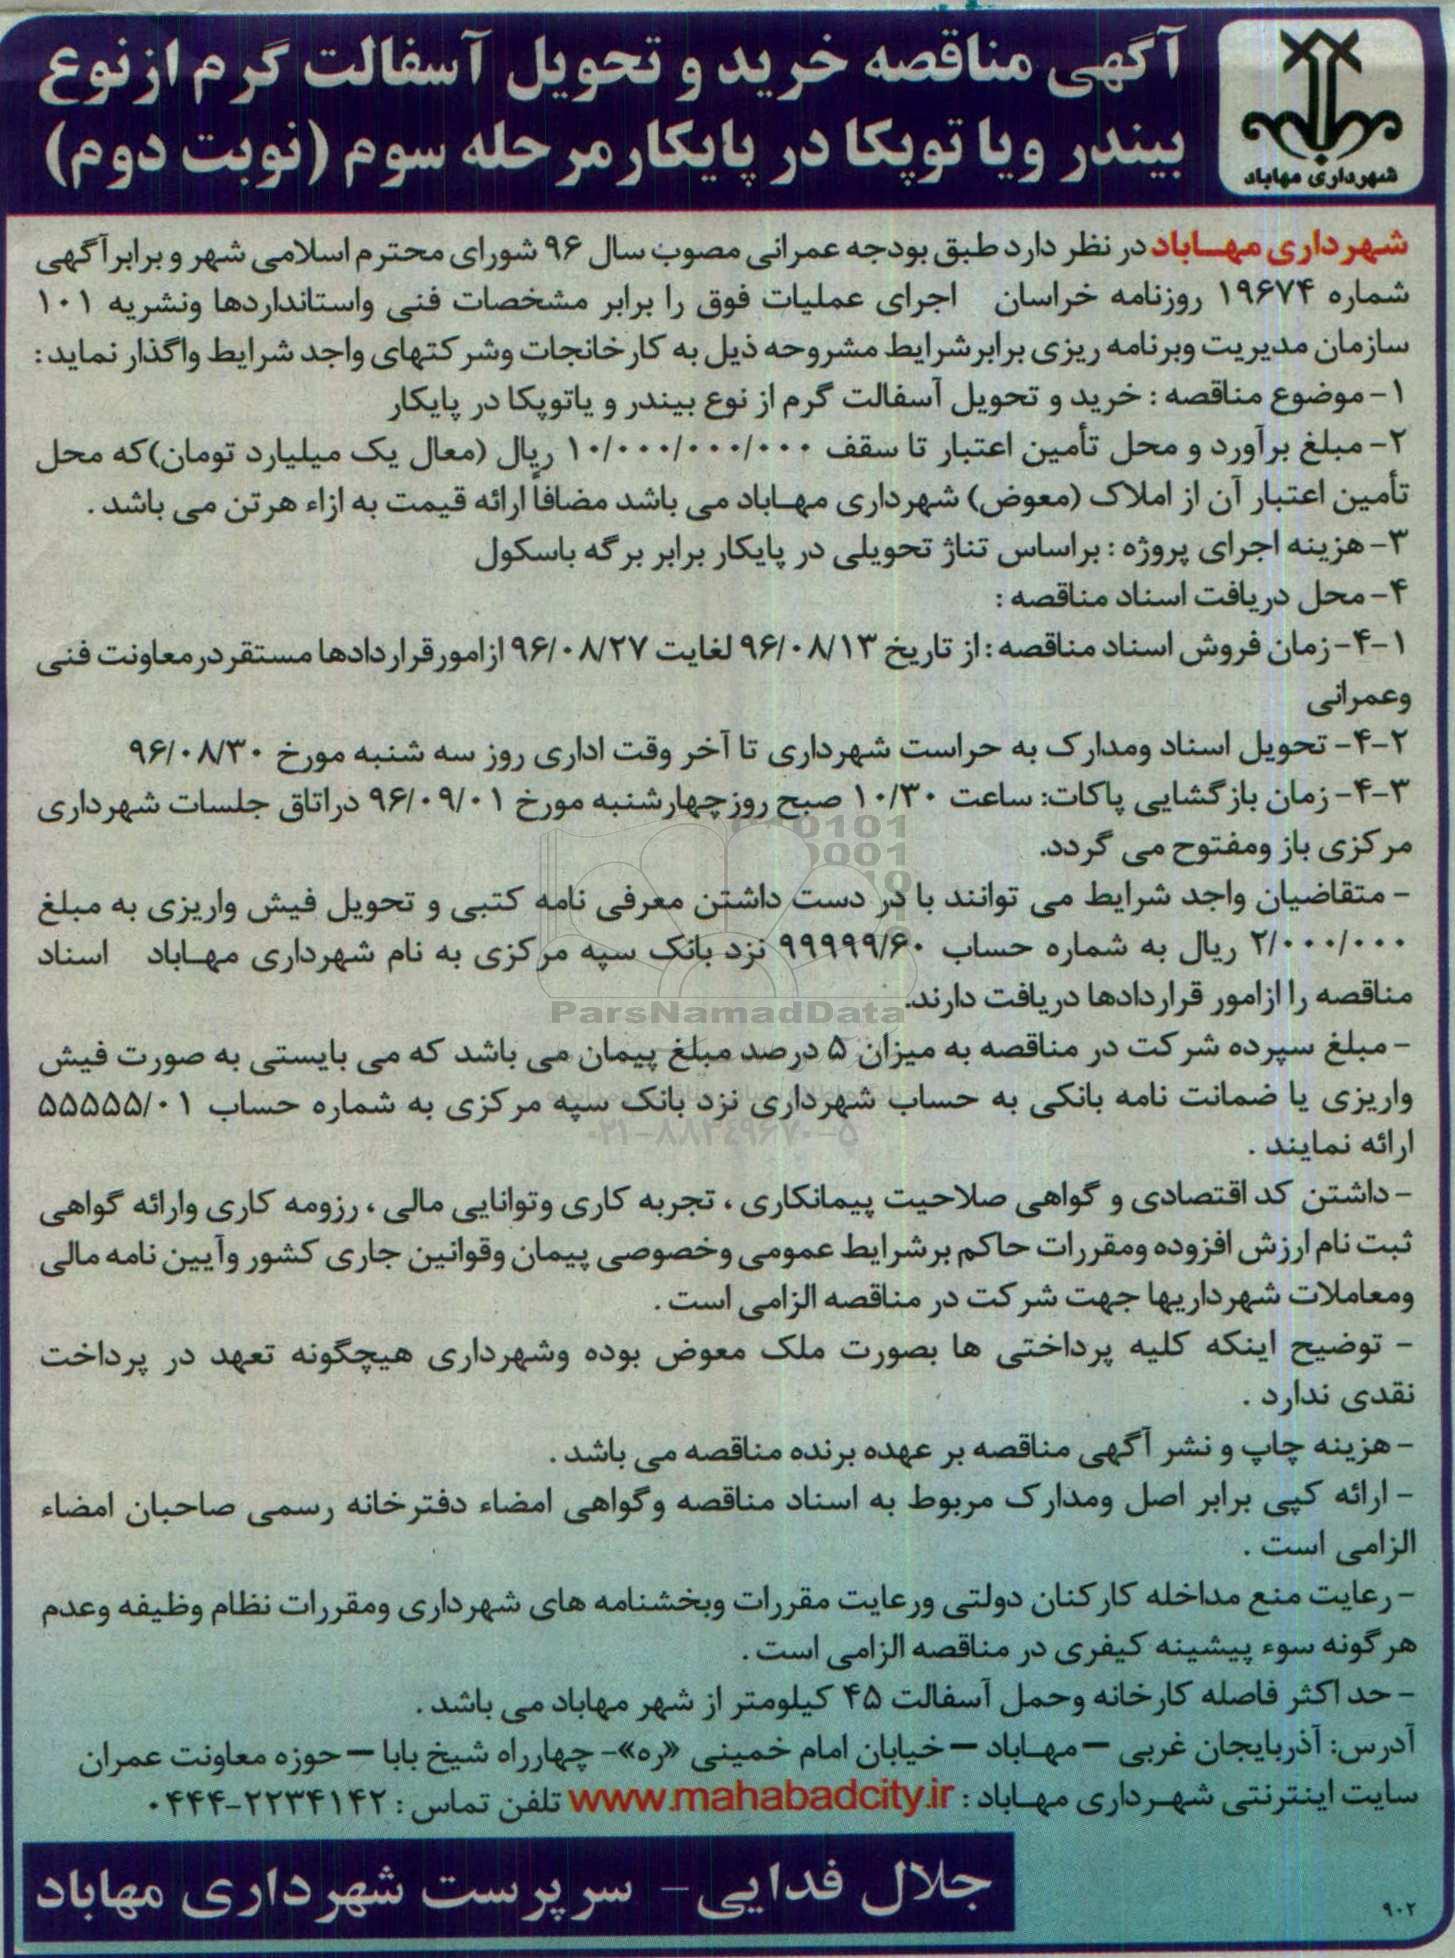 آگهی مناقصه خرید و تحویل آسفالت گرم از نوع
بیندر ویا توپکا در پایکار مرحله سوم (نوبت دوم)
شهرداری مهاباد
شهرداری مهـاباد در نظر دارد طبق بودجه عمرانی مصوب سال ۹۶ شورای محترم اسلامی شهر و برابر آگهی
شماره ۱۹۶۷۴ روزنامه خراسان اجرای عملیات فوق را برابر مشخصات فنی واستانداردها ونشریه ۱۰۱
سازمان مدیریت وبرنامه ریزی برابر شرایط مشروحه ذیل به کارخانجات وشرکتهای واجد شرایط واگذار نماید:
۱- موضوع مناقصه : خرید و تحویل آسفالت گرم از نوع بیندر و یاتوپکا در پایکار
۲- مبلغ برآورد و محل تأمین اعتبار تا سقف ۱۰/۰۰۰/۰۰۰/۰۰۰ ریال (معال یک میلیارد تومان)که محل
تأمین اعتبار آن از املاک (معوض) شهرداری مهـاباد می باشد مضافاً ارائه قیمت به ازاء هرتن می باشد .
۳- هزینه اجرای پروژه : براساس تناژ تحویلی در پایکار برابر برگه باسکول
۴- محل دریافت اسناد مناقصه :
۴-۱- زمان فروش اسناد مناقصه : از تاریخ ۹۶/۰۸/۱۳ لغایت ۹۶/۰۸/۲۷ ازامورقراردادها مستقردرمعاونت فنی
وعمرانی
۴-۲- تحویل اسناد ومدارک به حراست شهرداری تا آخر وقت اداری روز سه شنبه مورخ ۹۶/۰۸/۳۰
۴-۳- زمان بازگشایی پاکات: ساعت ۱۰/۳۰ صبح روزچهارشنبه مورخ ۹۶/۰۹/۰۱ دراتاق جلسات شهرداری
مرکزی باز ومفتوح می گردد.
- متقاضیان واجد شرایط می توانند با در دست داشتن معرفی نامه کتبی و تحویل فیش واریزی به مبلغ
۲/۰۰۰/۰۰۰ ریال به شماره حساب ۹۹۹۹۹/۶۰ نزد بانک سپه مرکزی به نام شهرداری مهـاباد اسناد
مناقصه را ازامور قراردادها دریافت دارند.
ParsNamadData
- مبلغ سپرده شرکت در مناقصه به میزان ۵ درصد مبلغ پیمان می باشد که می بایستی به صورت فیش
واریزی یا ضمانت نامه بانکی به حساب شهرداری نزد بانک سپه مرکزی به شماره حساب ۵۵۵۵۵/۰۱
۰۲۱-۸۸۳۴۹۶۷۰-۵
ارائه نمایند .
- داشتن کد اقتصادی و گواهی صلاحیت پیمانکاری ، تجربه کاری وتوانایی مالی ، رزومه کاری وارائه گواهی
ثبت نام ارزش افزوده ومقررات حاکم برشرایط عمومی وخصوصی پیمان وقوانین جاری کشور وآیین نامه مالی
ومعاملات شهرداریها جهت شرکت در مناقصه الزامی است .
- توضیح اینکه کلیه پرداختی ها بصورت ملک معوض بوده وشهرداری هیچگونه تعهد در پرداخت
نقدی ندارد .
- هزینه چاپ و نشر آگهی مناقصه بر عهده برنده مناقصه می باشد .
- ارائه کپی برابر اصل ومدارک مربوط به اسناد مناقصه وگواهی امضاء دفترخانه رسمی صاحبان امضاء
الزامی است .
- رعایت منع مداخله کارکنان دولتی ورعایت مقررات وبخشنامه های شهرداری ومقررات نظام وظیفه وعدم
هرگونه سوء پیشینه کیفری در مناقصه الزامی است .
- حداکثر فاصله کارخانه وحمل آسفالت ۴۵ کیلومتر از شهر مهاباد می باشد .
آدرس: آذربایجان غربی – مهـاباد – خیابان امام خمینی «ره»- چهارراه شیخ بابا – حوزه معاونت عمران
سایت اینترنتی شهـرداری مهـاباد : www.mahabadcity.ir تلفن تماس : ۲۲۳۴۱۴۲-۰۴۴۴
جلال فدایی- سرپرست شهرداری مهاباد
۹۰۲